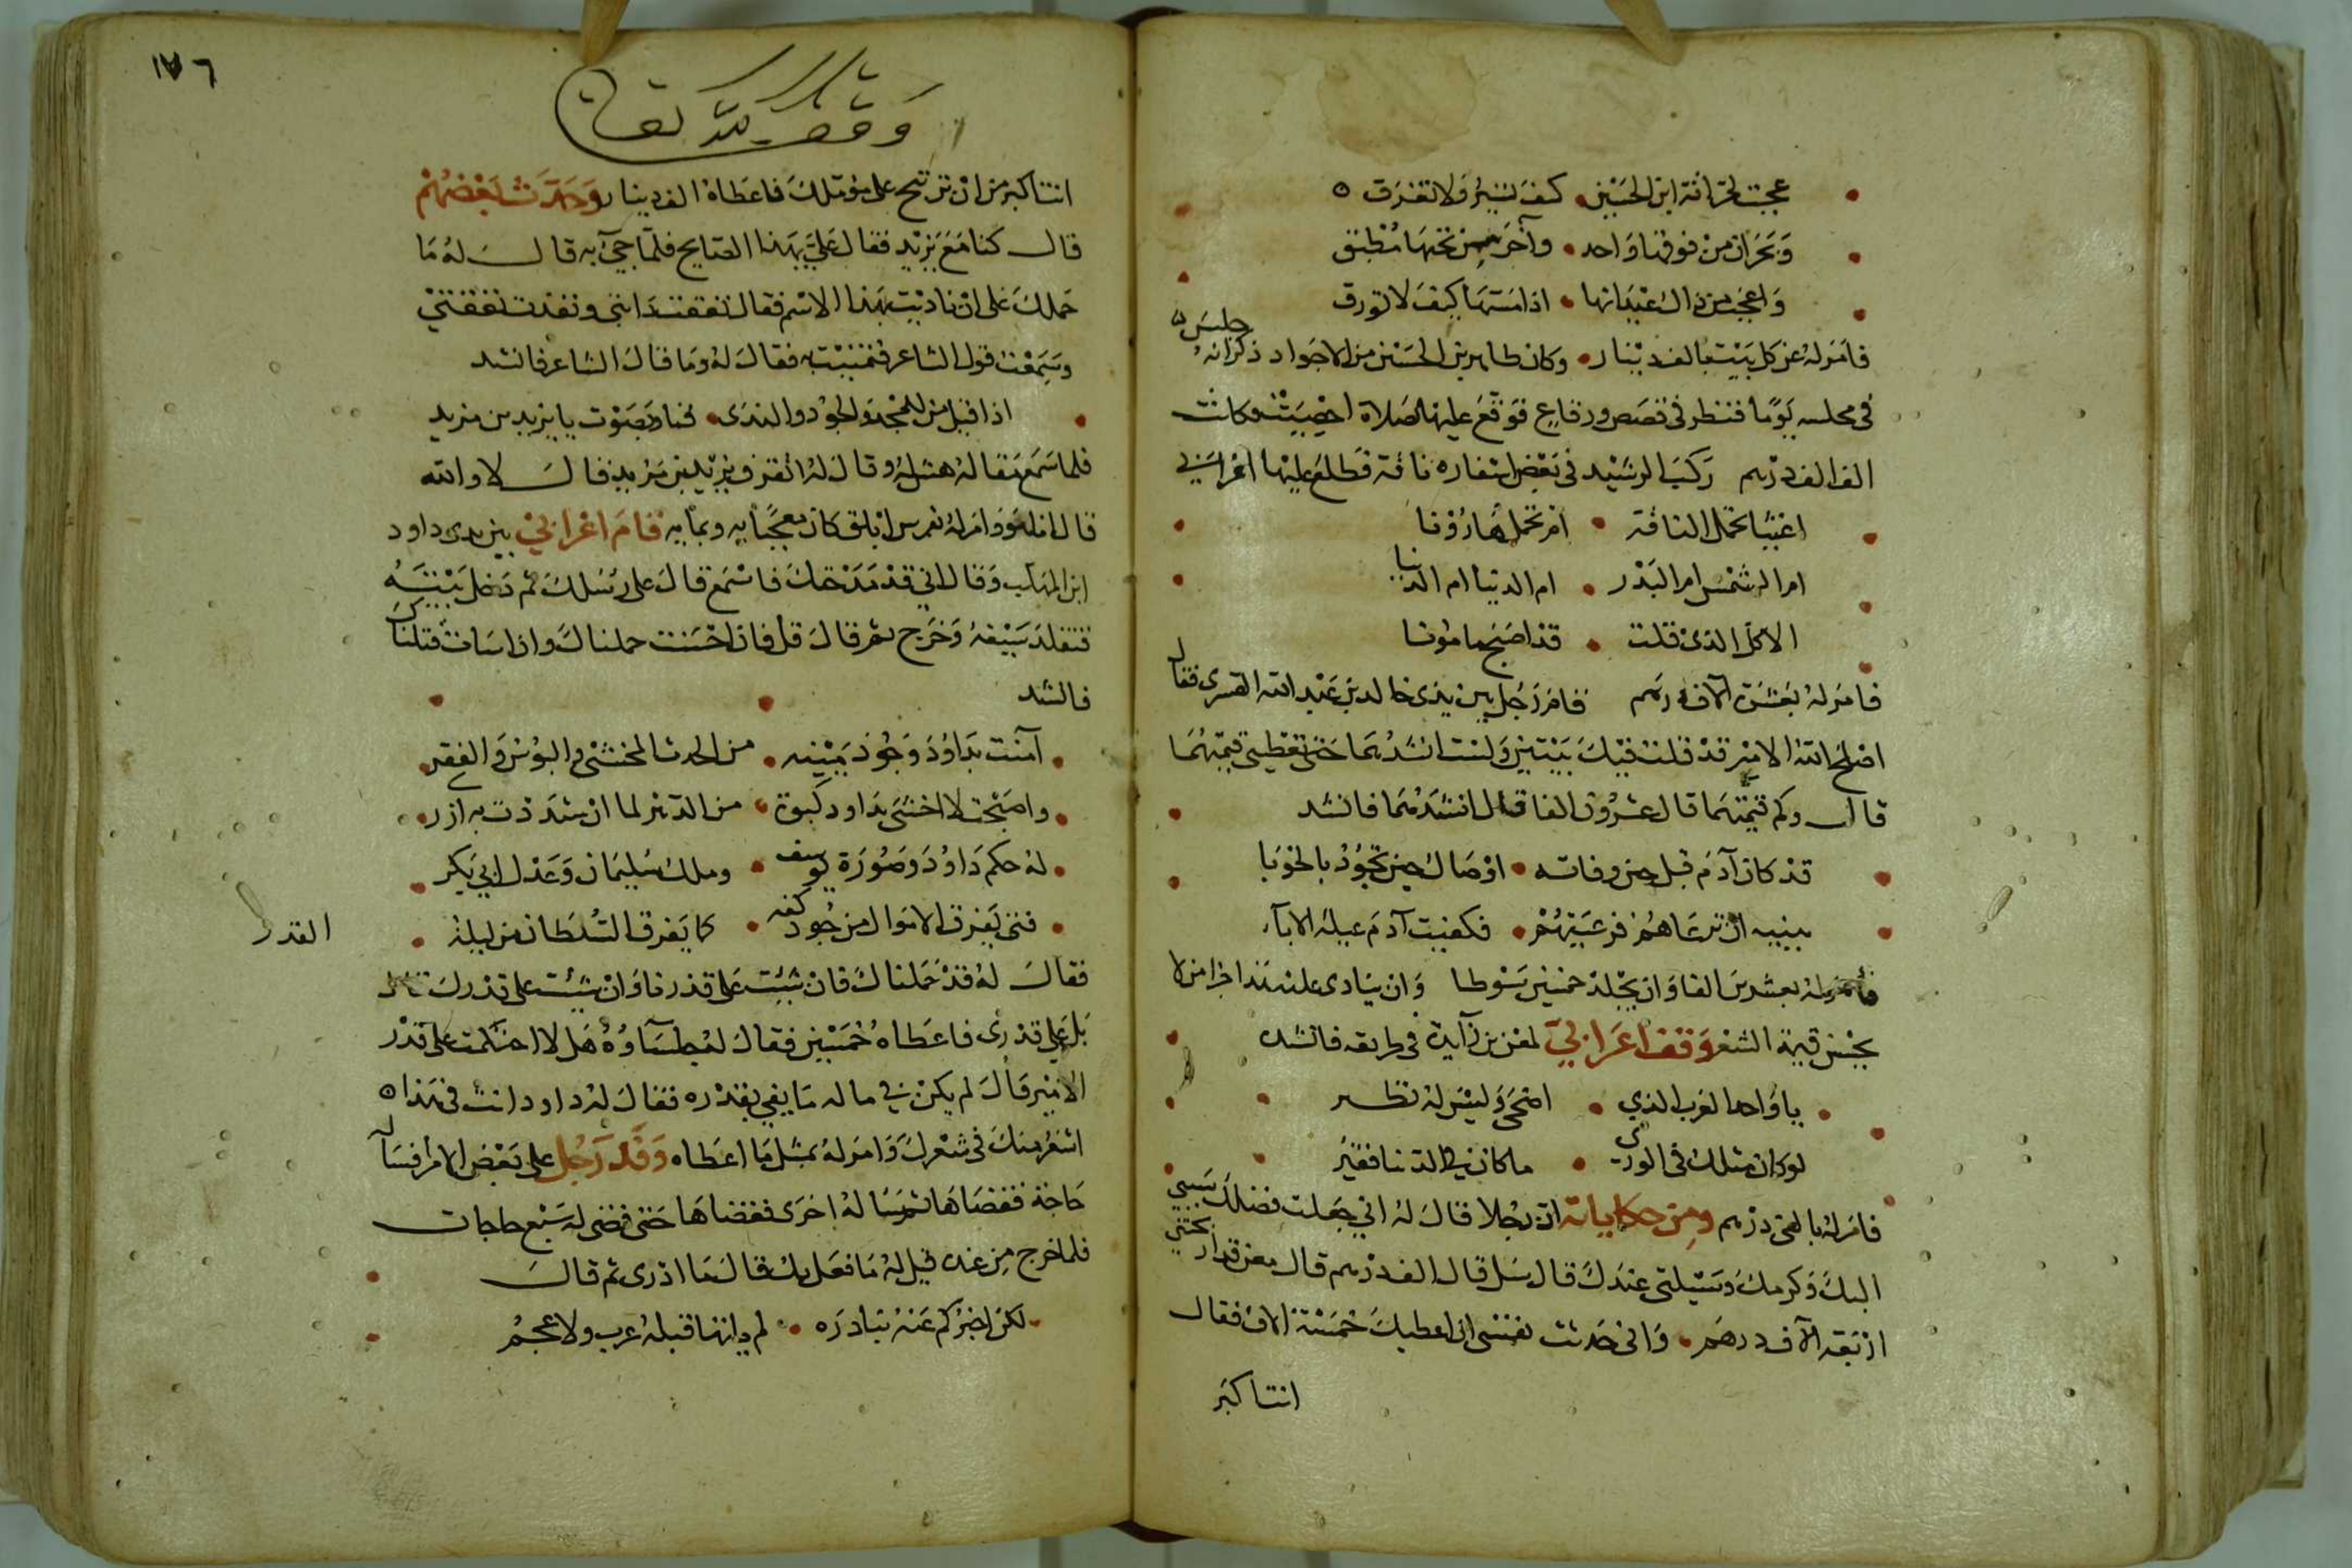 عجبت لحراقة ابن الحسين كيف تسير ولا تغرق
وبحران من فوقها واحد وآخر من تحتها مطبق
واعجب من ذاك عيدانها اذا مسها كيف لا تورق
فامر له عن كل بيت بالف دينار وكان طاهر بن الحسين من الاجواد ذكر انه جلس
في مجلسه يوما فنظر في قصص ورقاع فوقع عليها صلاة احصيت فكانت
الف الف درهم ركب الرشيد في بعض اسفاره ناقة فطلع عليها اعرابي
اغيثا تحمل الناقة ام تحمل هارونا
ام الشمس ام البدر ام الدنيا ام الدينا
الا كل الذي قلت قد اصبح مامونا
فامر له بعشرة الاف درهم فقام رجل بين يدي خالد بن عبد الله القسري فقال
اصلح الله الامير قد قلت فيك بيتين ولست انشدهما حتى تعطيني قيمتهما
قال وكم قيمتهما قال عشرون الفا قال انشدهما فانشد
قد كان آدم قبل حين وفاته اوصاك حين تجود بالحوبا
ببنيه ان ترعاهم فرعيتهم فكفيت آدم عيلة الابآء
فأمر له بعشرين الفا وان يجلد خمسين سوطا وان ينادى عليه هذا جزا من لا
يحسن قيمة الشعر وقف اعرابي لمعن بن زآيدة في طريقه فانشد
يا واحد العرب الذي اضحى وليس له نظير
لو كان مثلك في الورى ما كان في الدنيا فقير
فامر له بالفي درهم ومن حكاياته ان رجلا قال له اني جعلت فضلك سببي
اليك وكرمك وسيلتي عندك قال سل قال الف درهم قال معن قد اربحتني
اربعة الآف درهم واني حدثت نفسي ان اعطيك خمسة الاف فقال
انت اكبر
١٧٦
وقف لله تعالى
انت اكبر من ان تربح على مؤملك فاعطاه الف دينار وحدث بعضهم
قال كنا مع يزيد فقال علي بهذا الصايح فلما جيء به قال له ما
حملك على ان ناديت بهذا الاسم فقال نفقت دابتي ونفدت نفقتي
وسمعت قول الشاعر فتمنيت به فقال له وما قال الشاعر فانشد
اذا قيل من للمجد والجود والندى فناد بصوت يا يزيد بن مزيد
فلما سمع مقاله هش له وقال له اتعرف يزيد بن مزيد قال لا والله
قال انا هو وامر له بفرس ابلق كان معجبا به وبمأيه قام اعرابي بين يدي داود
ابن المهلب وقال اني قد مدحتك فاسمع قال على رسلك ثم دخل بيته
فتقلد سيفه وخرج ثم قال قل فان احسنت حملناك وان اسات قتلناك
فانشد
آمنت بداود وجود يمينه من الحدث المخشي والبؤس والفقر
واصبحت لا اخشى بداود كبوة من الدهر لما ان شددت به ازر
له حكم داود وصورة يوسف وملك سليمان وعدل ابي بكر
فتى تفرق الاموال من جود كفه كما يفرق السلطان من ليلة
القدر
فقال له قد حملناك فان شئت على قدرنا وان شئت على قدرك قال
بل على قدري فاعطاه خمسين فقال له جلساوه هلا احتكمت على قدر
الامير قال لم يكن في ماله ما يفي بقدره فقال له داود انت في هذا
اشعر منك في شعرك وامر له بمثل ما اعطاه وفد رجل على بعض الامرا فسال
حاجة فقضاها ثم سأله اخرى فقضاها حتى قضى له سبع حاجات
فلما خرج من عنده قيل له ما فعل بك قال ما ادري ثم قال
لكن اخبركم عنه بنادرة لم يأتها قبله عرب ولا عجم